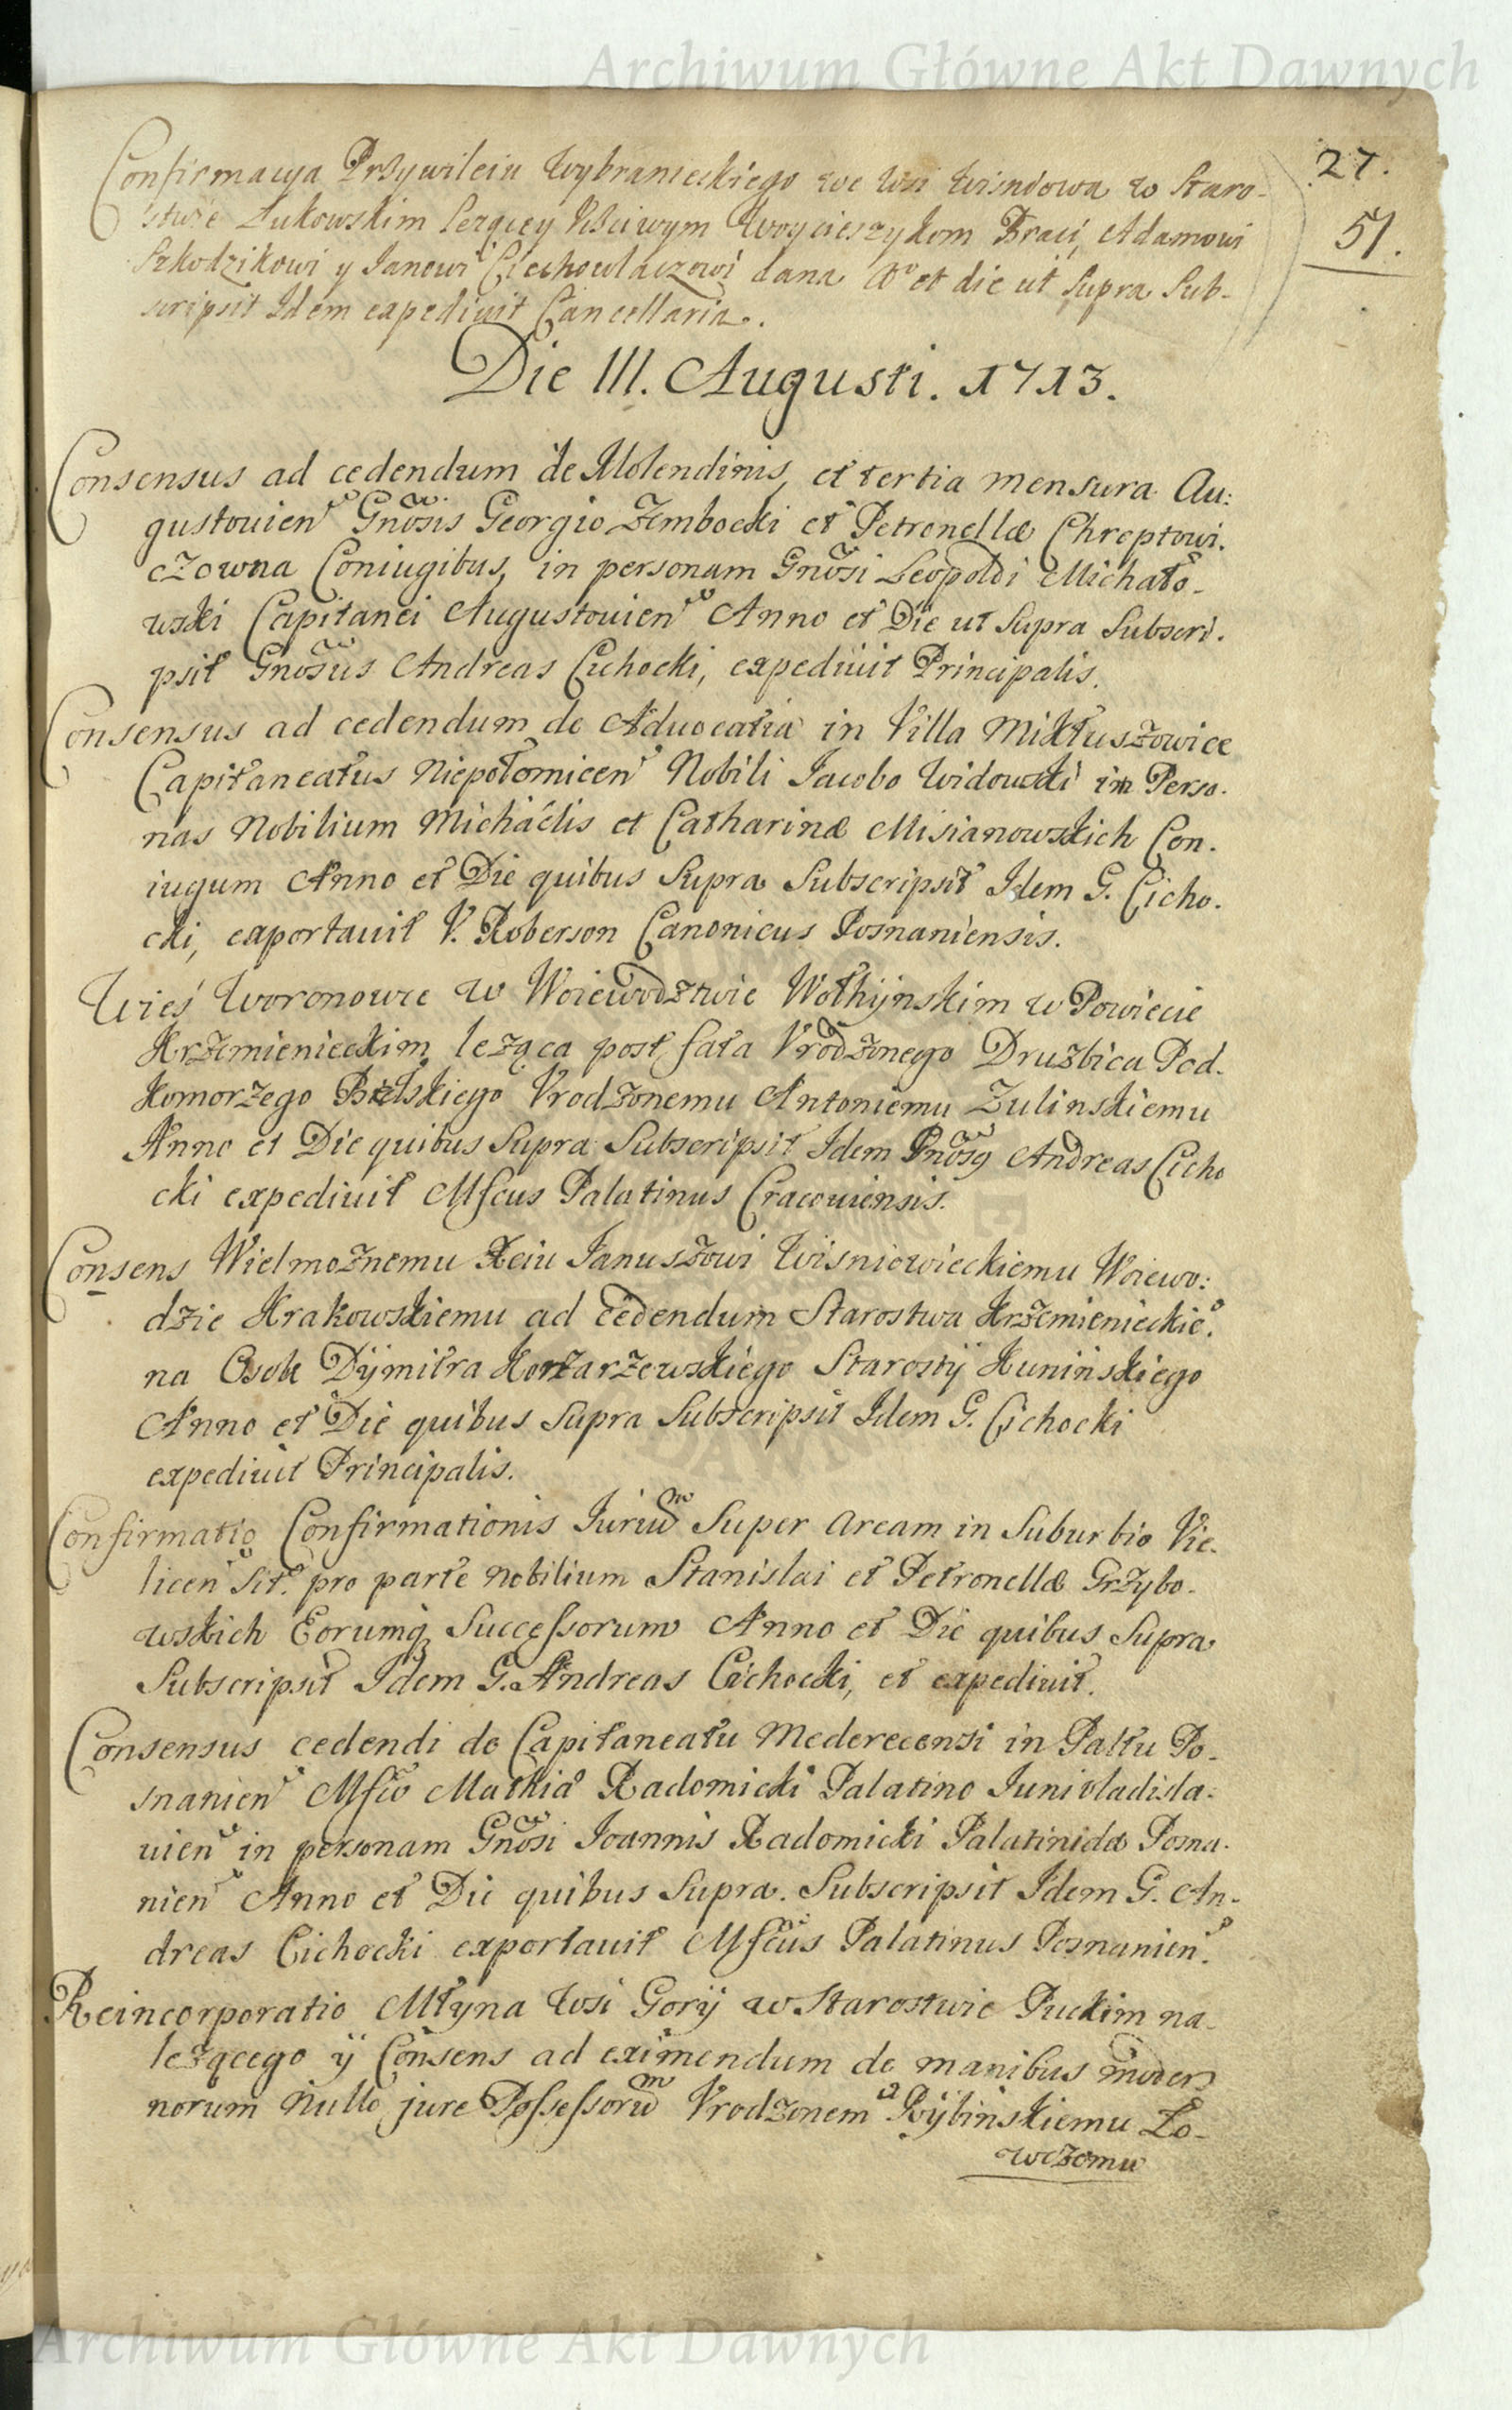 Archiwum Główne Akt Dawnych
27.
51.
Confirmacya Przywileiu Wybranieckiego we Wsi Wisniowa w Staro-
stwie Łukowskim leząey Uściwym Woycieszykom Braci, Adamowi
Szkodzikowi y Janowi Ciechowlaczowi dana Ao et die ut Supra Sub-
scripsit Idem expediuit Cancellaria.
Die III. Augusti. 1713.
Consensus ad cedendum de Molendinis, et tertia mensura Au:
gustouien Gnosis Georgio Zembocki et Petronellæ Chreptowi.
czowna Coniugibus, in personam Gnosi Leopoldi Michało-
wski Capitanei Augustouien Anno et Die ut Supra Subscri.
psit Gnosus Andreas Cichocki, expediuit Principalis.
Consensus ad cedendum de Aduocatia in Villa Mikłuszowice
Capitaneatus Niepołomicen Nobili Jacobo Widowski in Perso.
nas Nobilium Michaelis et Catharinæ Misianowskich Con.
iugum Anno et Die quibus Supra Subscripsit Idem G. Cicho.
cki, exportauit V. Roberson Canonicus Posnaniensis.
Wieś Woronowce w Woiewodztwie Wołhynskim w Powiecie
Krzemienieckim leząca post fata Vrodzonego Druzbica Pod.
komorzego Bełskiego Vrodzonemu Antoniemu Zulinskiemu
Anno et Die quibus Supra Subscripsit Idem Gnosq Andreas Cicho
cki expediuit Mfcus Palatinus Cracouiensis.
Consens Wielmoznemu Xciu Januszowi Wisniowieckiemu Woiewo:
dzie Krakowskiemu ad cedendum Starostwa Krzemienieckieo
na Osobę Dÿmitra Korzarzewskiego Starostÿ Kuninskiego
Anno et Die quibus Supra Subscripsit Idem G. Cichocki
expediuit Principalis.
Confirmatio Confirmationis Juriu Super aream in Suburbio Vie.
licen Sit. pro parte nobilium Stanislai et Petronellæ Grzybo-
wskich Eorumq Successorum Anno et Die quibus Supra
Subscripsit Idem G. Andreas Cichocki, et expediuit.
Consensus cedendi de Capitaneatu Mederecensi in Pałtu Po-
snanien Mfco Mathiæ Radomicki Palatino Junivladisla:
uien in personam Gnosi Joannis Radomicki Palatinidæ Posna.
nien Anno et Die quibus Supra. Subscripsit Idem G. An-
dreas Cichocki exportauit Mfcus Palatinus Posnanien.
Reincorporatio Młyna Wsi Gorÿ w Starostwie Puckim na-
lezącego ÿ Consens ad eximendum de manibus moder
norum nullo jure Possessoru Vrodzonem Rÿbinskiemu Ło-
wczemu
Archiwum Główne Akt Dawnych